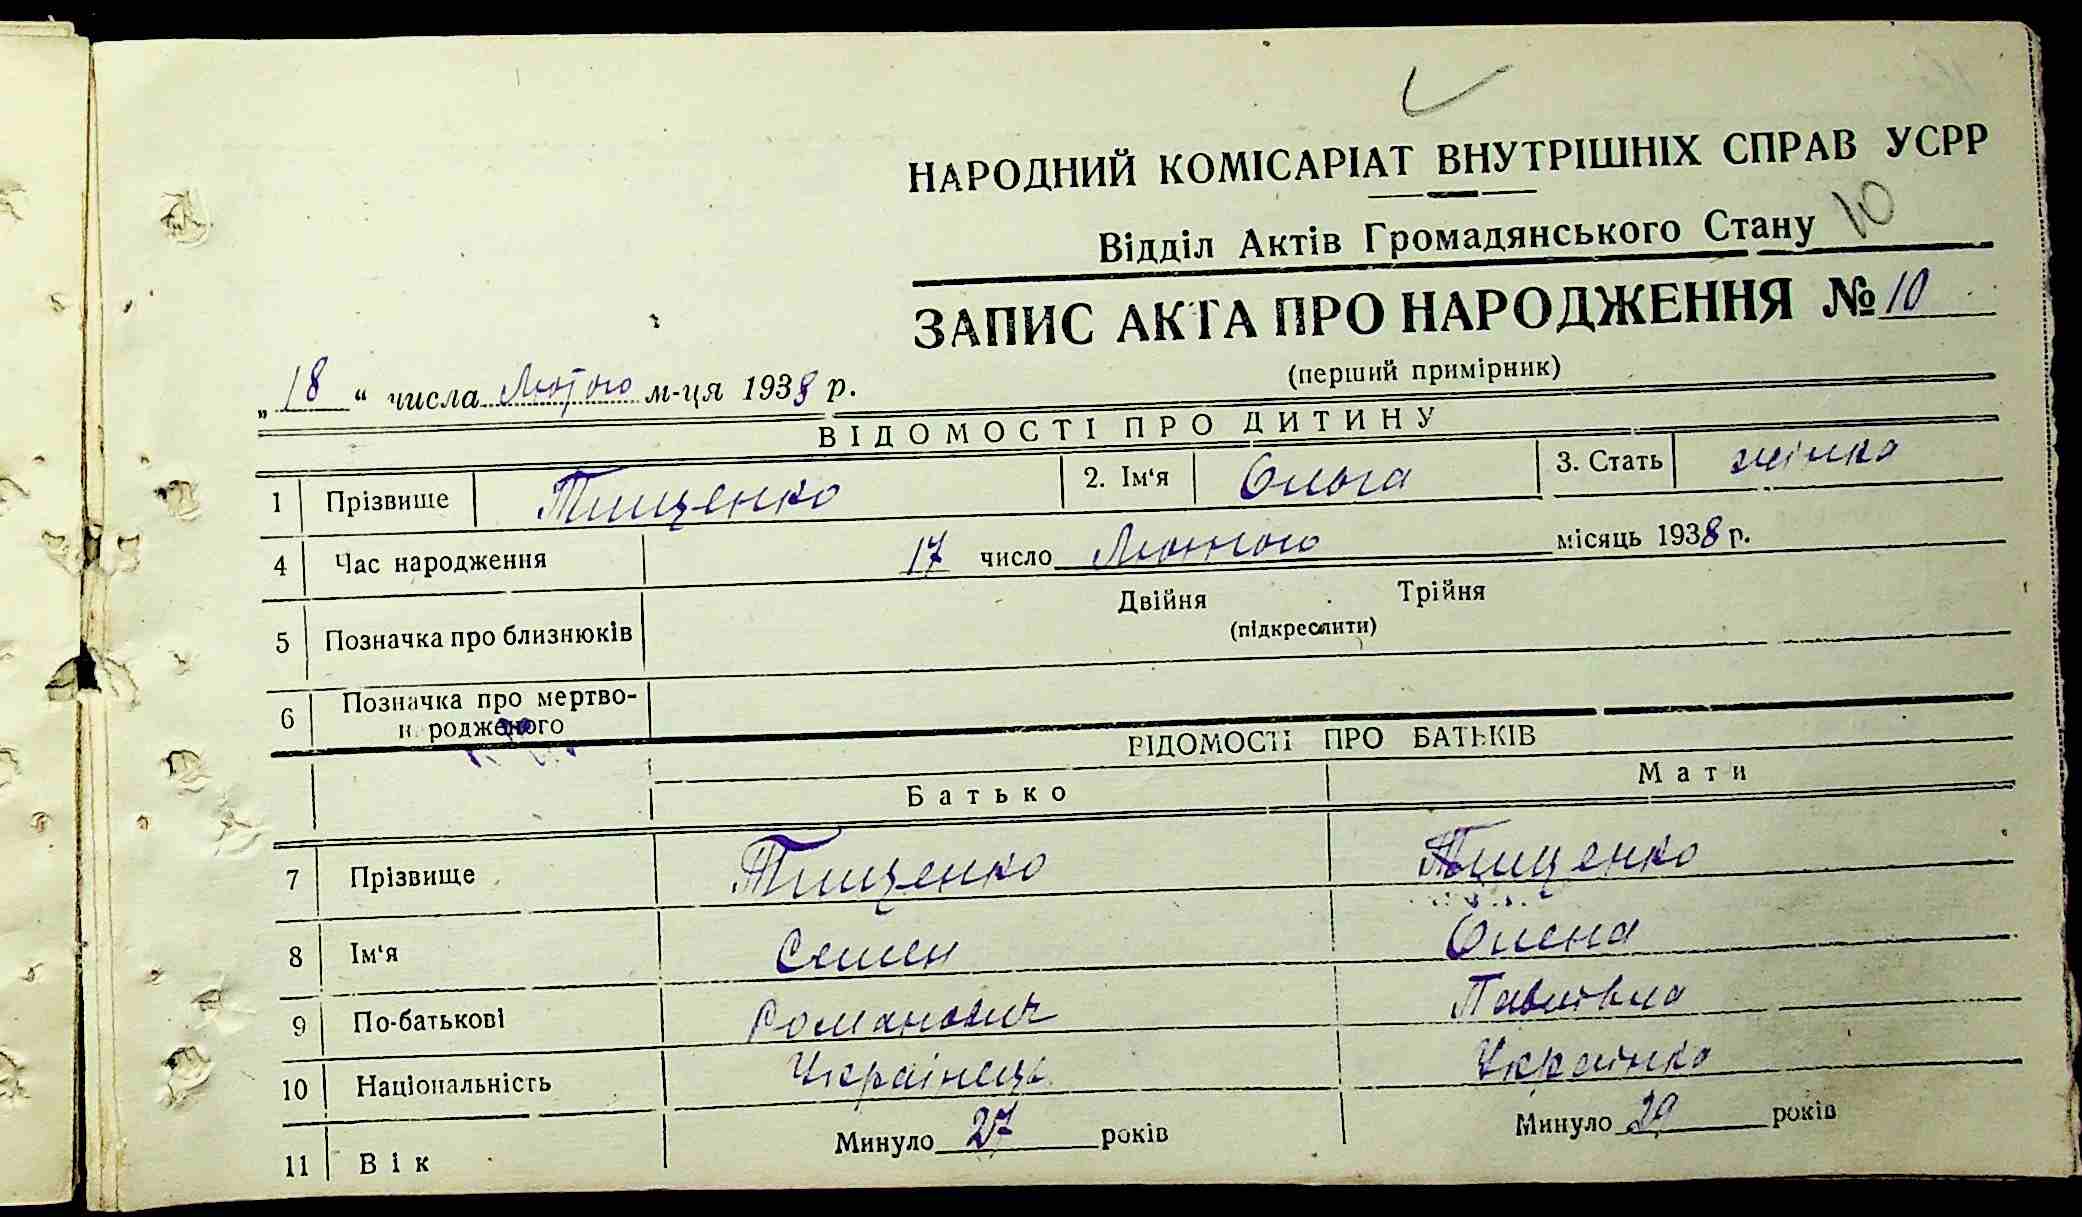 НАРОДНИЙ КОМІСАРІАТ ВНУТРІШНІХ СПРАВ УСРР
Відділ Актів Громадянського Стану 10
ЗАПИС АКТА ПРО НАРОДЖЕННЯ № 10
(перший примірник)
„18“ числа Лютого м-ця 1938 р.
ВІДОМОСТІ ПРО ДИТИНУ
1 Прізвище Тищенко 2. Ім'я Ольга 3. Стать жінка
4 Час народження 17 число Лютого місяць 1938 р.
5 Позначка про близнюків Двійня Трійня
(підкреслити)
6 Позначка про мертво-
н родженого
ВІДОМОСТІ ПРО БАТЬКІВ
Батько Мати
7 Прізвище Тищенко Тищенко
8 Ім'я Семен Олена
9 По-батькові Романович Павлівна
10 Національність Українець Українка
11 Вік Минуло 27 років Минуло років